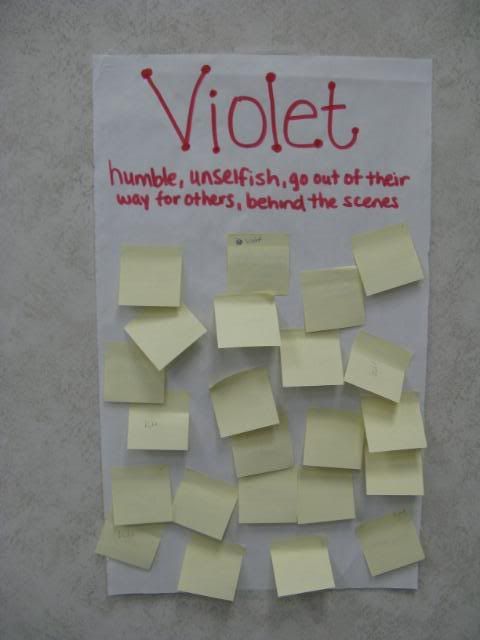 Violet
humble, unselfish, go out of their
way for others, behind the scenes
Violet